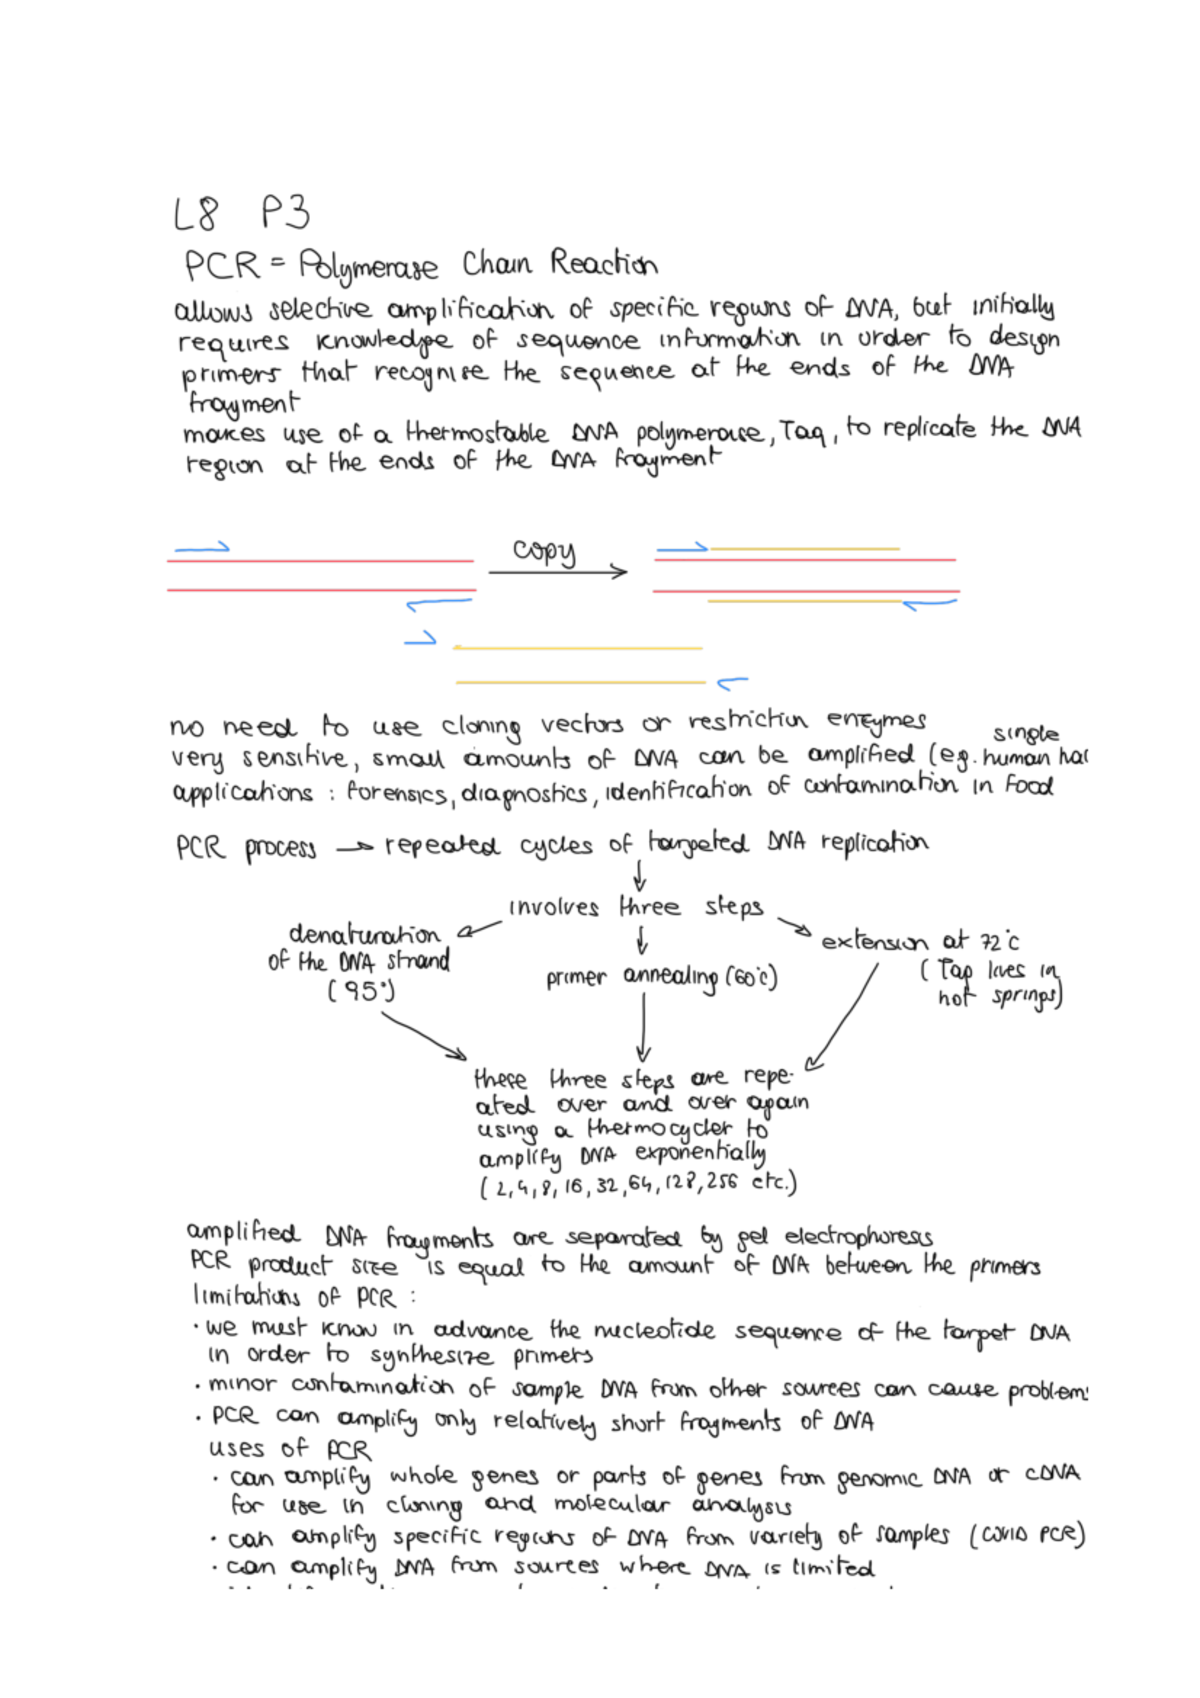 L8 P3
PCR = Polymerase Chain Reaction
allows selective amplification of specific regions of DNA, but initially
requires knowledge of sequence information in order to design
primers that recognise the sequence at the ends of the DNA
fragment
makes use of a thermostable DNA polymerase, Taq, to replicate the DNA
region at the ends of the DNA fragment
copy
no need to use cloning vectors or restriction enzymes
single
very sensitive, small amounts of DNA can be amplified (eg. human hai
applications : forensics, diagnostics, identification of contamination in food
PCR process → repeated cycles of targeted DNA replication
involves three steps
denaturation
of the DNA strand
(95°)
primer annealing (60°c)
extension at 72°c
(Taq lives in
hot springs)
these three steps are repe-
ated over and over again
using a thermocycler to
amplify DNA exponentially
(2, 4, 8, 16, 32, 64, 128, 256 etc.)
amplified DNA fragments are separated by gel electrophoresis
PCR product size is equal to the amount of DNA between the primers
limitations of PCR :
· we must know in advance the nucleotide sequence of the target DNA
in order to synthesize primers
· minor contamination of sample DNA from other sources can cause problems
· PCR can amplify only relatively short fragments of DNA
uses of PCR
· can amplify whole genes or parts of genes from genomic DNA or cDNA
for use in cloning and molecular analysis
· can amplify specific regions of DNA from variety of samples (COVID PCR)
· can amplify DNA from sources where DNA is limited